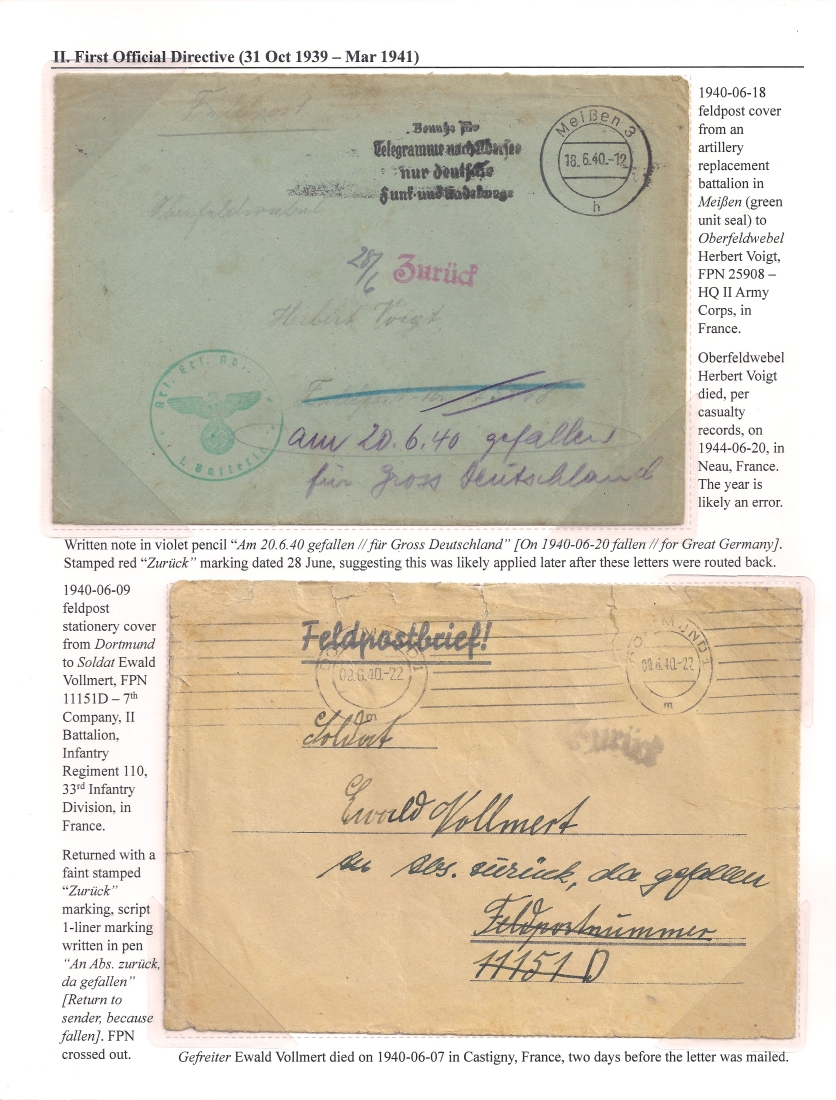 II. First Official Directive (31 Oct 1939 – Mar 1941)
Feldpost
Benutze für
Telegramme nach Übersee
nur deutsche
Funk- und Kabelwege
Meißen 3
18.6.40.-12
h
Oberfeldwebel
28/6 Zurück
Herbert Voigt
Art. Ers. Abt.
1. Batterie
am 20.6.40 gefallen
für Gross Deutschland
1940-06-18
feldpost cover
from an
artillery
replacement
battalion in
Meißen (green
unit seal) to
Oberfeldwebel
Herbert Voigt,
FPN 25908 –
HQ II Army
Corps, in
France.
Oberfeldwebel
Herbert Voigt
died, per
casualty
records, on
1944-06-20, in
Neau, France.
The year is
likely an error.
Written note in violet pencil “Am 20.6.40 gefallen // für Gross Deutschland” [On 1940-06-20 fallen // for Great Germany].
Stamped red “Zurück” marking dated 28 June, suggesting this was likely applied later after these letters were routed back.
1940-06-09
feldpost
stationery cover
from Dortmund
to Soldat Ewald
Vollmert, FPN
11151D – 7th
Company, II
Battalion,
Infantry
Regiment 110,
33rd Infantry
Division, in
France.
Returned with a
faint stamped
“Zurück”
marking, script
1-liner marking
written in pen
“An Abs. zurück,
da gefallen”
[Return to
sender, because
fallen]. FPN
crossed out.
Feldpostbrief!
09.6.40.-22
DORTMUND 1
09.6.40.-22
m
Soldat
Zurück
Ewald Vollmert
an Abs. zurück, da gefallen
Feldpostnummer
11151 D
Gefreiter Ewald Vollmert died on 1940-06-07 in Castigny, France, two days before the letter was mailed.